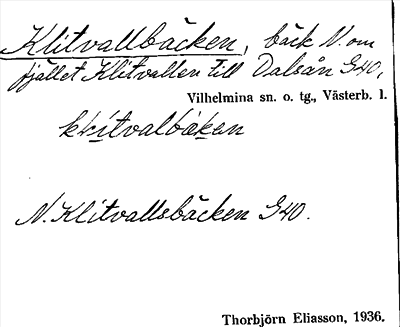 Klitvallbäcken, bäck N. om
fjället Klitvallen till Dalsån G40,
Vilhelmina sn. o. tg., Västerb. l.
klitvalbäken
N. Klitvallsbäcken G40.
Thorbjörn Eliasson, 1936.